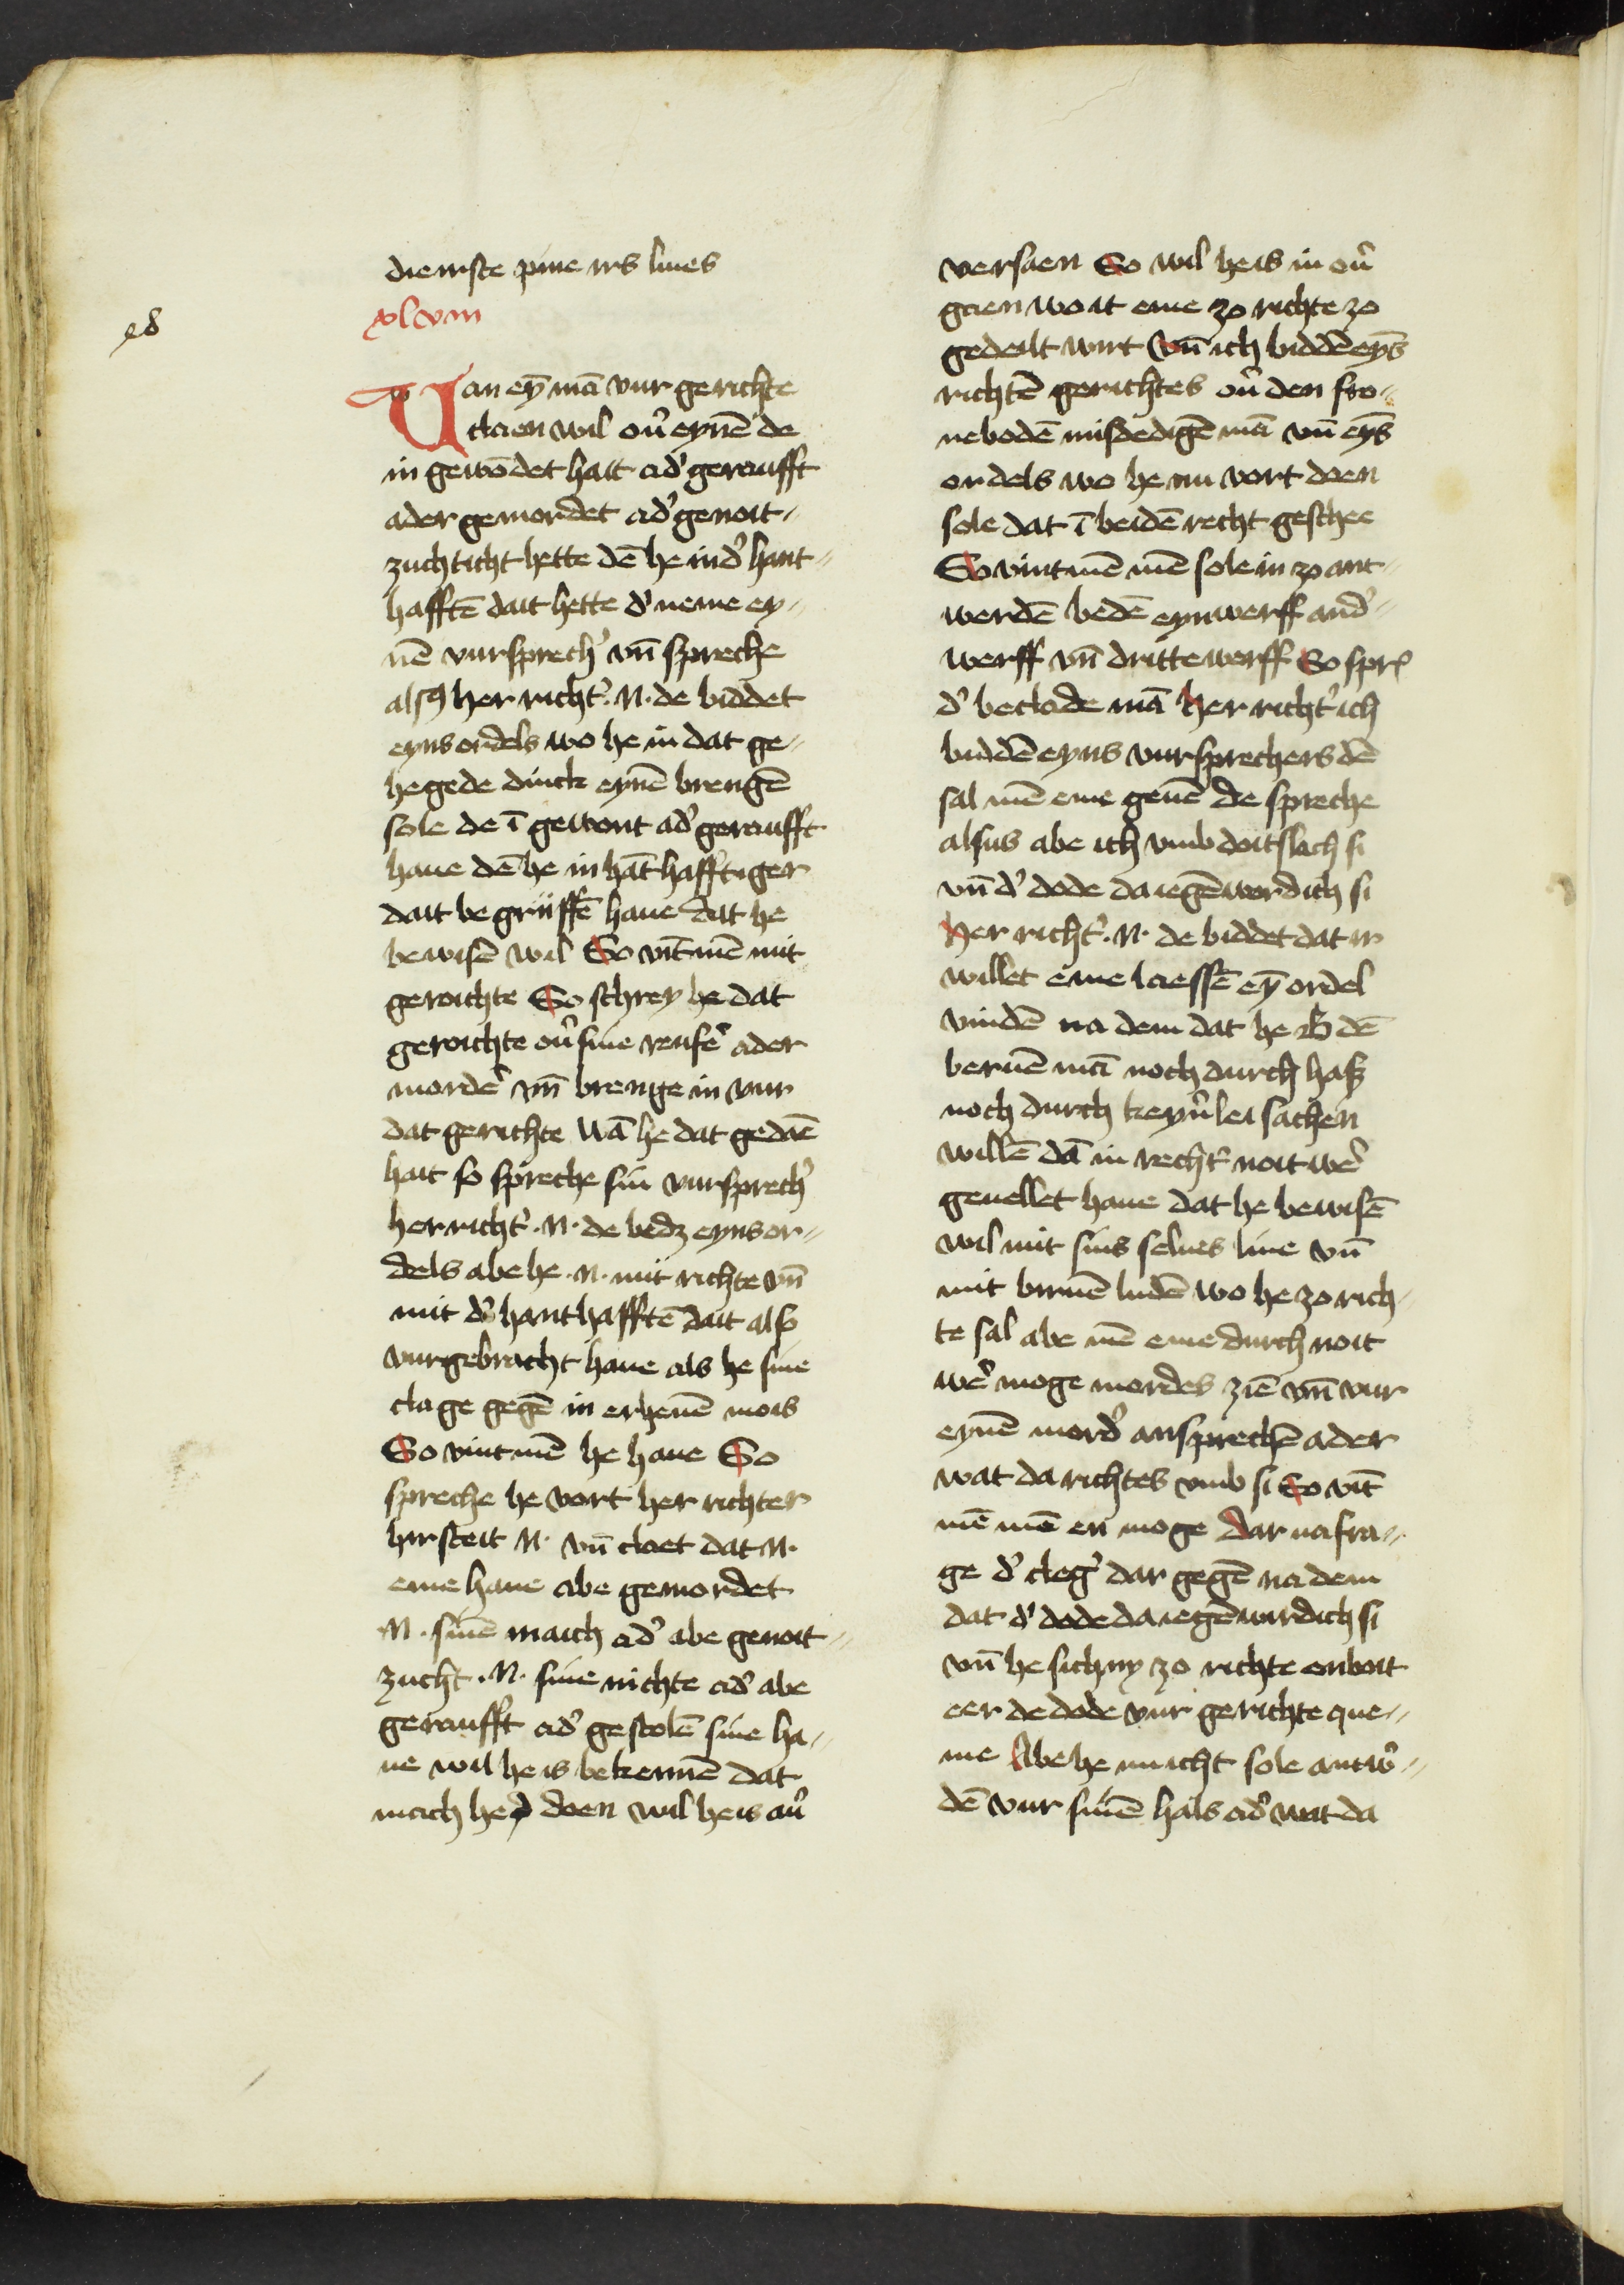 diernste pine irs liues
xlviii
48
Wan ey̅ ma̅ vur gerichte
claen wil ou͛ eyne̅ de
in gewo̅det hait ad͛ geraufft
ader gemordet ad͛ genoit⸗
zuchticht hette de̅ he in d͛ hant⸗
haffte̅ dait hette d͛ neme ey⸗
ne̅ vursprech͛ vn̅ spreche
alsus her richt͛ · N · de biddet
eyns ordels wo he in dat ge⸗
hegede dinck eyne̅ brenge̅
sole de i̅ gewont ad͛ geraufft
haue de̅ he in ha̅thafftiger
dait begriiffe̅ haue dat he
bewise̅ wil So vi̅t me̅ mit
geroichte So schrey he dat
geroichte ou͛ sine reufe͛ ader
morde͛ vn̅ brenge in vur
dat gerichte wa̅ he dat gedae̅
hait so spreche sin vursprech͛
her richt͛ · N · de bedz eyns or⸗
dels abe he · N · mit richte vn̅
mit d͛ hanthaffte̅ dait also
vurgebracht haue als he sine
clage gege̅ in erheue̅ mois
So vint me̅ he haue So
spreche he vort her richter
hir steit N · vn̅ claet dat N ·
eme haue abe gemordet
N · sine̅ maich ad͛ abe genoit⸗
zucht · N · sine nichte ad͛ abe
geraufft ad͛ gestole̅ sine ha⸗
ue wil he is bekenne̅ dat
mach he doen wil he is au͛
versaen So wil he is in ou͛
gaen wo it eme zo richte zo
gedeilt wirt vn̅ ich bidde̅ eyns̅
richte̅ gerichtes ou͛ den fro⸗
nebode̅ misdedige̅ ma̅ vn̅ eyns̅
ordels wo he nu vort doen
sole dat i̅ beide̅ recht geschee
So vint me̅ me̅ sole in zo ant⸗
werde̅ bede̅ eynwerff and͛⸗
werff vn̅ drittewerff So spr̄
d͛ beclade ma̅ her richt͛ ich
bidde̅ eyns vursprechers de̅
sal me̅ eme geue̅ de spreche
alsus abe ich vmb doitslach si
vn̅ d͛ dode da iege̅wordich si
her richt͛ · N · de biddet dat ir
willet eme laesse̅ ey̅ ordel
vinde̅ na dem dat he de̅
berue̅ ma̅ noch durch hasz
noch durch keyn͛lei sachen
wille̅ da̅ in recht͛ noitwe͛
geuellet haue dat he bewise̅
wil mit sins selues liue vn̅
mit birue̅ lude̅ wo he zo rich⸗
te sal abe me̅ eme durch noit
we͛ moge mordes zie̅ vn̅ vur
eyne̅ mord͛ anspreche̅ ader
wat da richtes vmb si So vi̅t
me̅ me̅ en moge Dar na fra⸗
ge d͛ cleg͛ dar gege̅ na dem
dat d͛ dode da iege̅wirdich si
vn̅ he sich ny zo richte enboit
eer de dode vur gerichte que⸗
me Abe he nu icht sole antw͛⸗
de̅ vur sine̅ hals ad͛ wat da